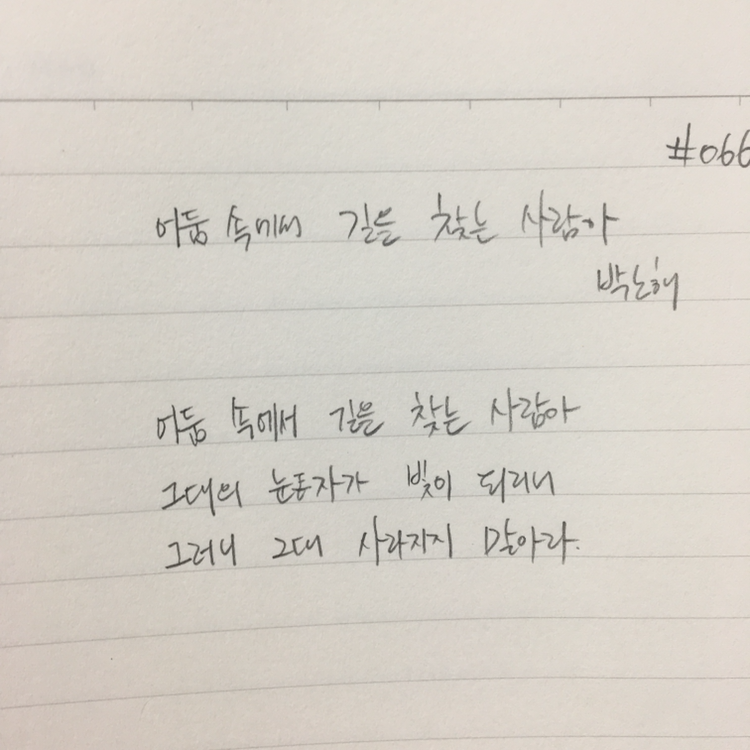 #066
어둠 속에서 길을 찾는 사람아
박노해
어둠 속에서 길을 찾는 사람아
그대의 눈동자가 빛이 되리니
그러니 그대 사라지지 말아라.